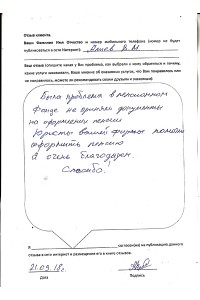 Отзыв клиента.
Ваше Фамилия Имя Отчество и номер мобильного телефона (номер не будет
публиковаться в сети Интернет):
Ваш отзыв (опишите какая у Вас проблема, как выбрали к кому обратиться и почему,
какие услуги оказывали, Ваше мнение об оказанных услугах, что Вам понравилось или
не понравилось, можете ли рекомендовать своим друзьям и знакомым):
Была проблема в пенсионном
фонде не приняли документы
на оформление пенсии
Юристы вашей фирмы помогли
оформить пенсию
я очень благодарен.
Спасибо!
Я согласен(на) на публикацию данного
отзыва в сети интернет и размещение его в книге отзывов.
21.09.18г.
Дата Подпись